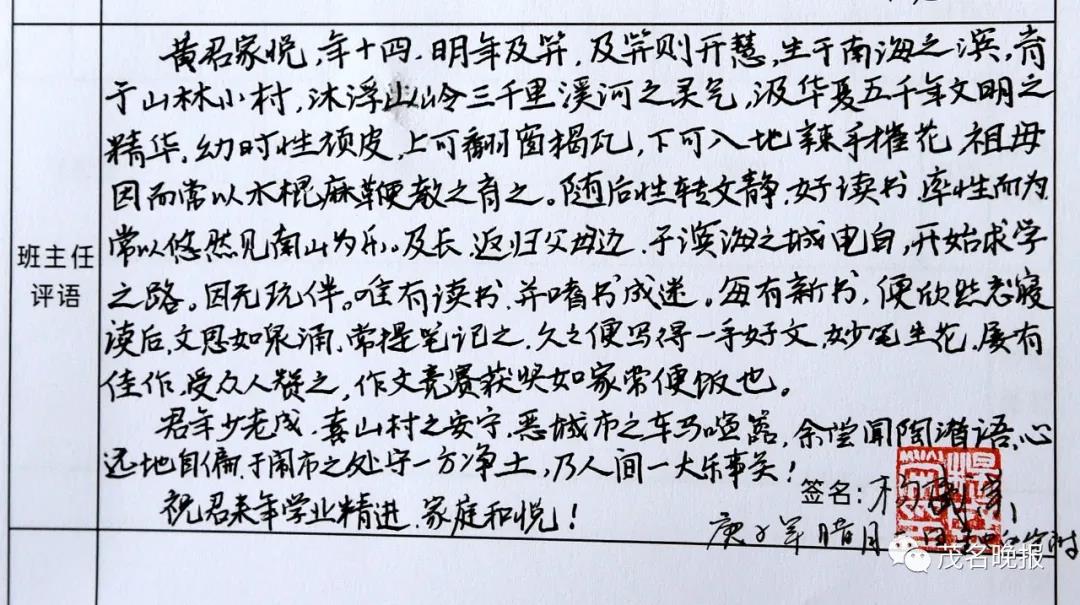 黄君家悦,年十四.明年及笄,及笄则开慧,生于南海之滨,育
于山林小村,沐浮山仙令三千里溪河之灵气,汲华夏五千年文明之
精华.幼时性顽皮,上可翻窗揭瓦,下可入地辣手摧花,祖母
因而常以木棍麻鞭教之育之。随后性转文静.好读书.率性而为,
常以悠然见南山为乐。及长.返归父母边.于滨海之城电白,开始求学
之路。因无玩伴。唯有读书.并嗜书成迷。每有新书,便欣然忘寝
读后,文思如泉涌.常提笔记之.久之便写得一手好文.妙笔生花.屡有
佳作,受众人赞之,作文竞赛获奖如家常便饭也。
班主任
评语
君年少老成.喜山村之安宁.恶城市之车马喧嚣,余尝闻陶潜语,心
远地自偏.于闹市之处守一方净土,乃人间一大乐事矣!
祝君来年学业精进.家庭和悦!
签名:
庚子年腊月
茂名晚报